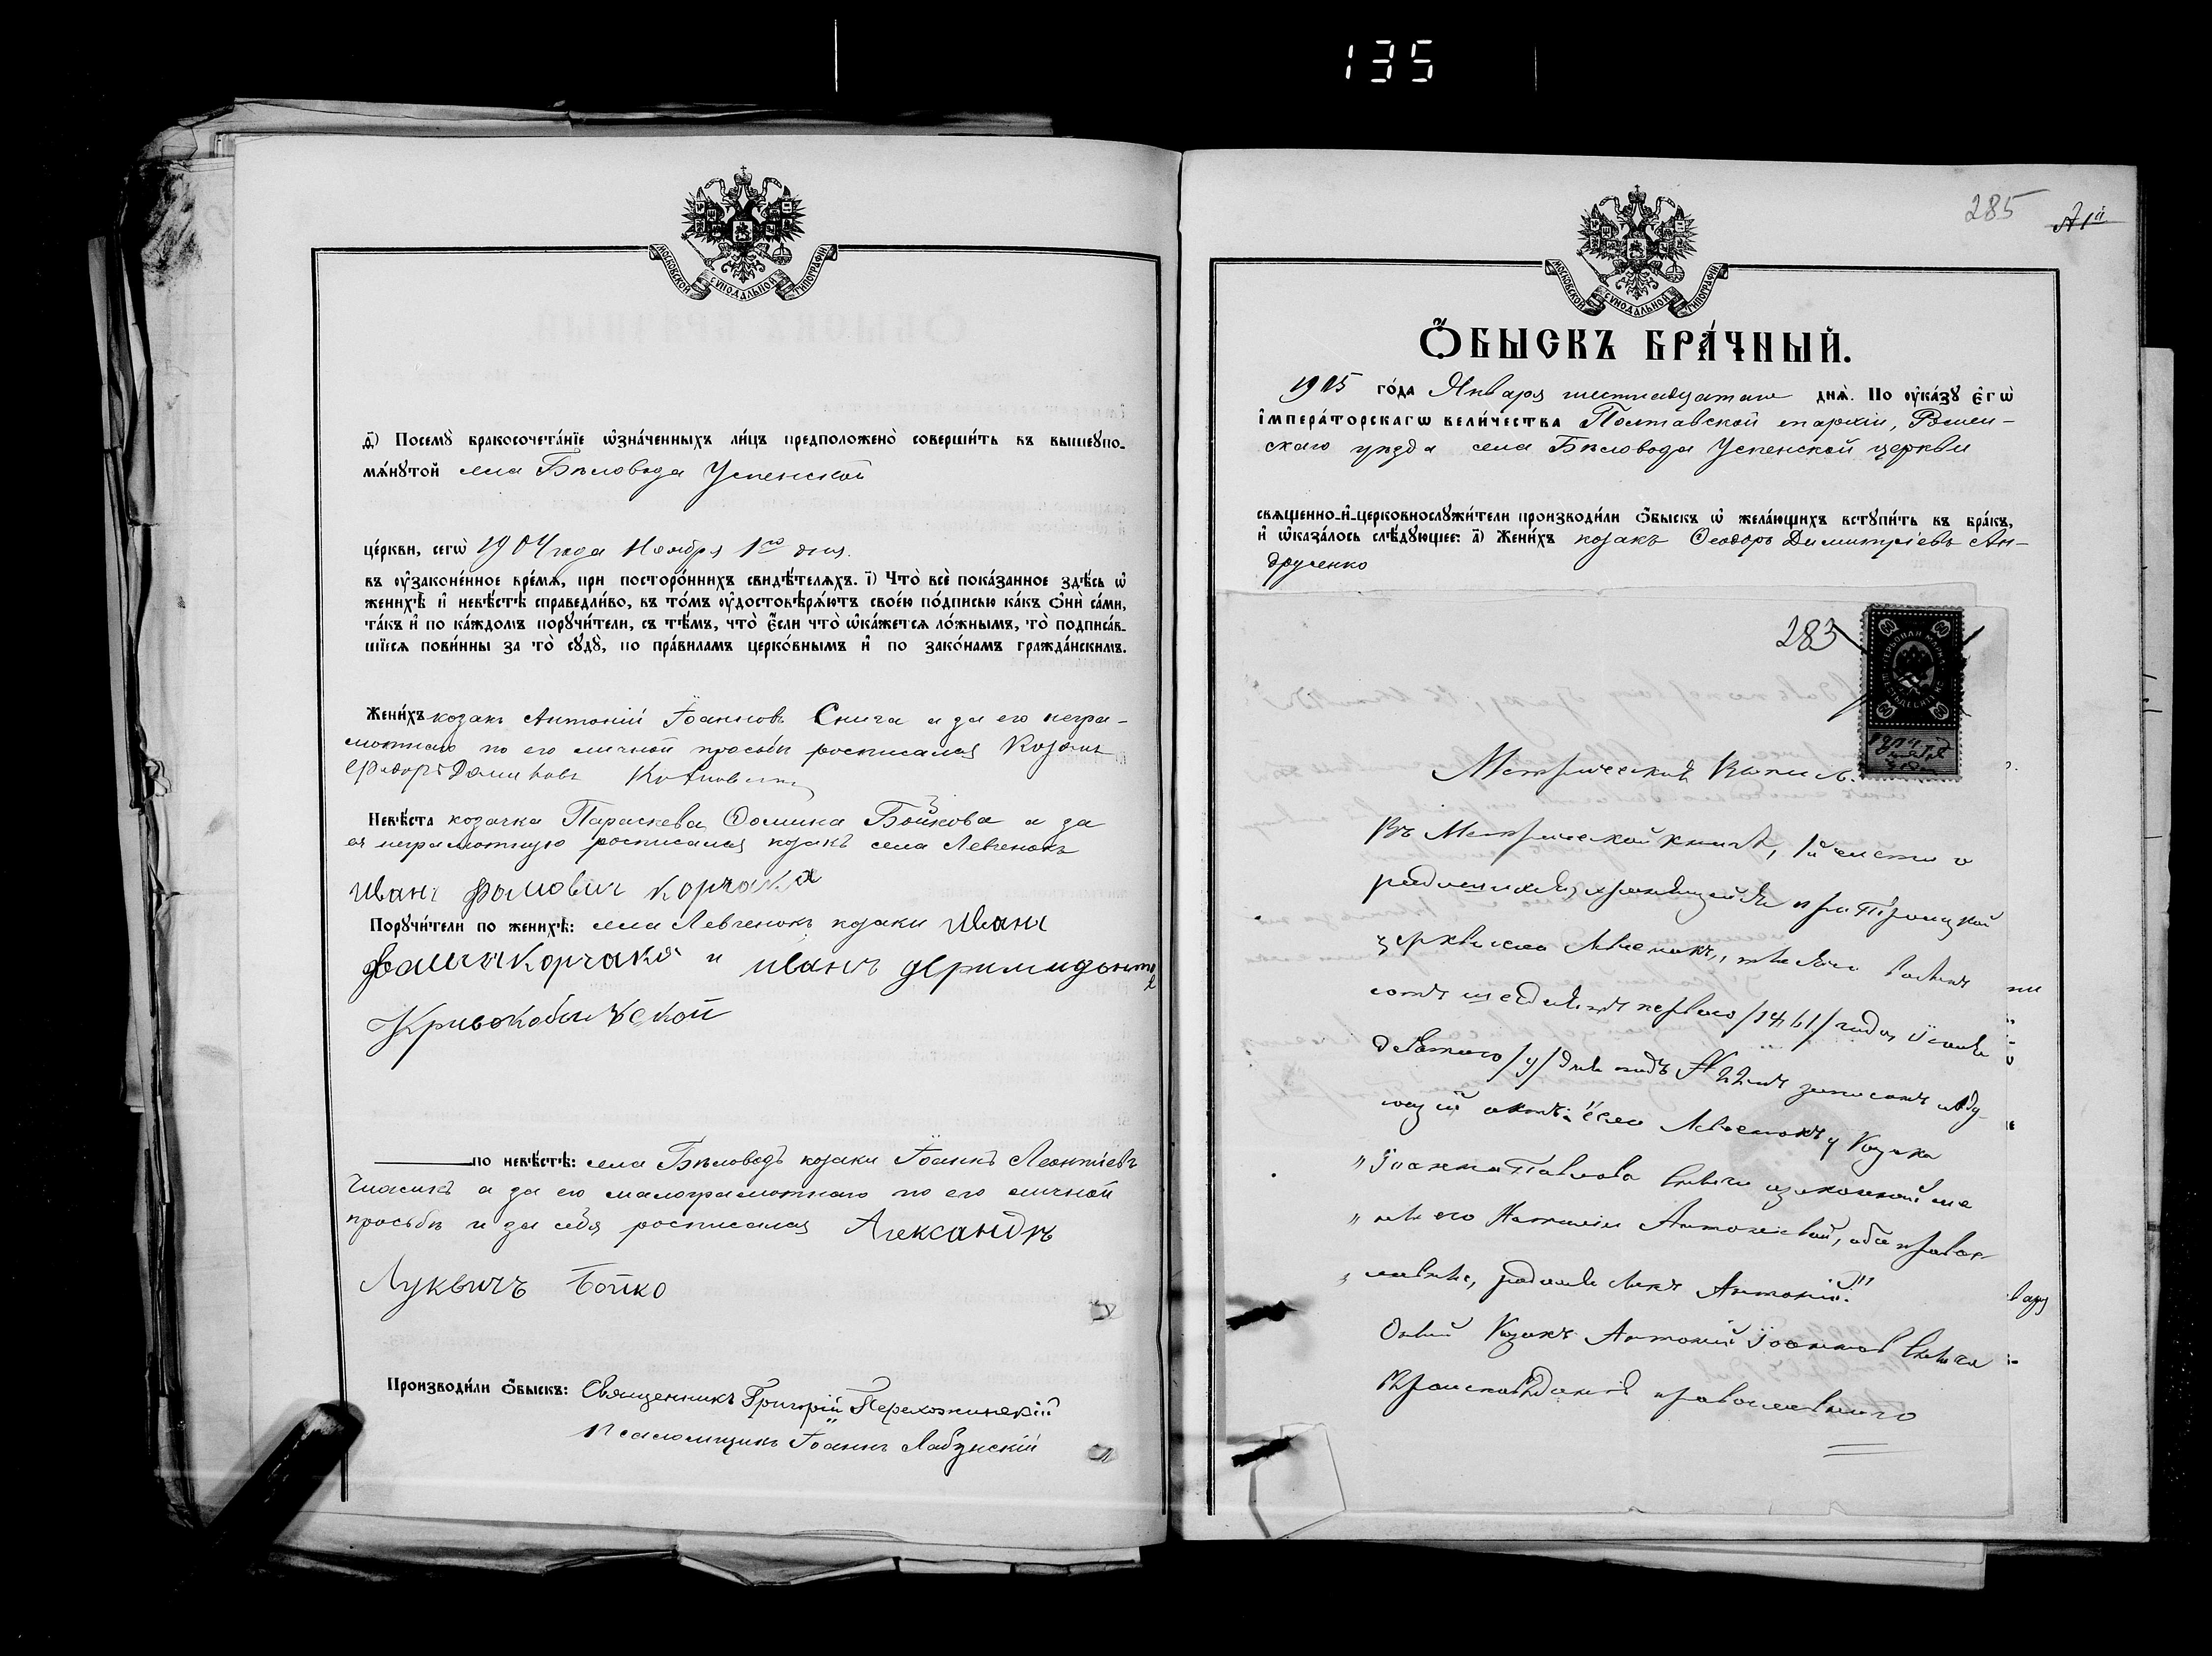 135
МОСКОВСКОЙ СѴНОДАЛЬНОЙ ТИПОГРАФІИ
ѳ҃) Посемꙋ̀ бракосочета́нїе ѡ҆зна́ченныхъ ли́цъ предположено̀ соверши́ть въ вышеꙋпо-
мѧ́нꙋтой села Бѣловода Успенской
це́ркви, сегѡ̀ 1904 года Ноября 1го дня.
въ ᲂу҆законе́нное вре́мѧ, при посторо́ннихъ свидѣ́телѧхъ. і҃) Что̀ всѐ пока́занное здѣ́сь ѡ҆
женихѣ̀ и҆ невѣ́стѣ справедли́во, въ то́мъ ᲂу҆достовѣрѧ́ютъ свое́ю по́дписью ка́къ ѻ҆нѝ са́ми,
та́къ и҆ по ка́ждомъ порꙋчи́тели, съ тѣ́мъ, что̀ є҆́сли что̀ ѡ҆ка́жетсѧ ло́жнымъ, то̀ подписа́в-
шїесѧ пови́нны за то̀ сꙋдꙋ̀, по пра́виламъ церко́внымъ и҆ по зако́намъ гражда́нскимъ.
Жени́хъ козакъ Антоній Іоанновъ Снига а за его негра-
мотнаго по его личной просьбѣ росписался Козакъ
Федоръ
Невѣ́ста козачка Параскева Ѳомина Бойкова а за
ея неграмотную росписался козакъ села Левченокъ
Иванъ Фомович Корчака
Порꙋчи́тели по женихѣ̀: села Левченокъ козаки Иванъ
Фомичъ Корчака и иванъ
по невѣ́стѣ: села Бѣловодъ козаки Іоаннъ Леонтіевъ
а за его малограмотнаго по его личной
просьбѣ и за себя росписался Александръ
Луквичъ Бойко
Производи́ли ѻ҆́быскъ: Священникъ Григорій
Псаломщикъ Іоаннъ Лабунскій
285
МОСКОВСКОЙ СѴНОДАЛЬНОЙ ТИПОГРАФІИ
Ѻ҆́БЫСКЪ БРА́ЧНЫЙ.
1905 го́да Января шестнадцатаго днѧ̀. По ᲂу҆ка́зꙋ є҆гѡ̀
і҆мпера́торскагѡ вели́чества Полтавской епархіи, Ромен-
скаго уѣзда села Бѣловода Успенской церкви
свѧще́нно-и҆-церковнослꙋжи́тели производи́ли ѻ҆́быскъ ѡ҆ жела́ющихъ встꙋпи́ть въ бра́къ,
и҆ ѡ҆каза́лось слѣ́дꙋющее: а҃) Жени́хъ козакъ Ѳеодоръ Димитріевъ Ан-
друченко
283
60 60
ГЕРБОВАЯ МАРКА
60 60
Метрическая Выпись.
Въ Метрической книгѣ, 1й части о
родившихся, хранящейся при Троицкой
церкви села Левченокъ, тысяча восемь
сотъ шестьдесятъ перваго /1861/ года, Іюня
девятаго /9/ дня подъ № 22мъ записанъ слѣду-
ющій актъ: "Села Левченокъ у Козака
"Іоанна Павлова Снѣги и законной же
"ны его Наталіи Антоніевой, оба правос-
"лавные, родился сынъ Антоній."
Козакъ Антоній Іоанновъ Снѣга
вѣроисповѣданія православнаго